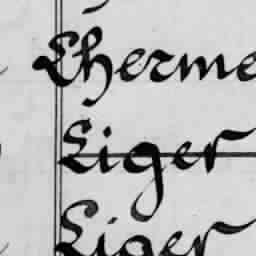 Lherme
Liger
Liger